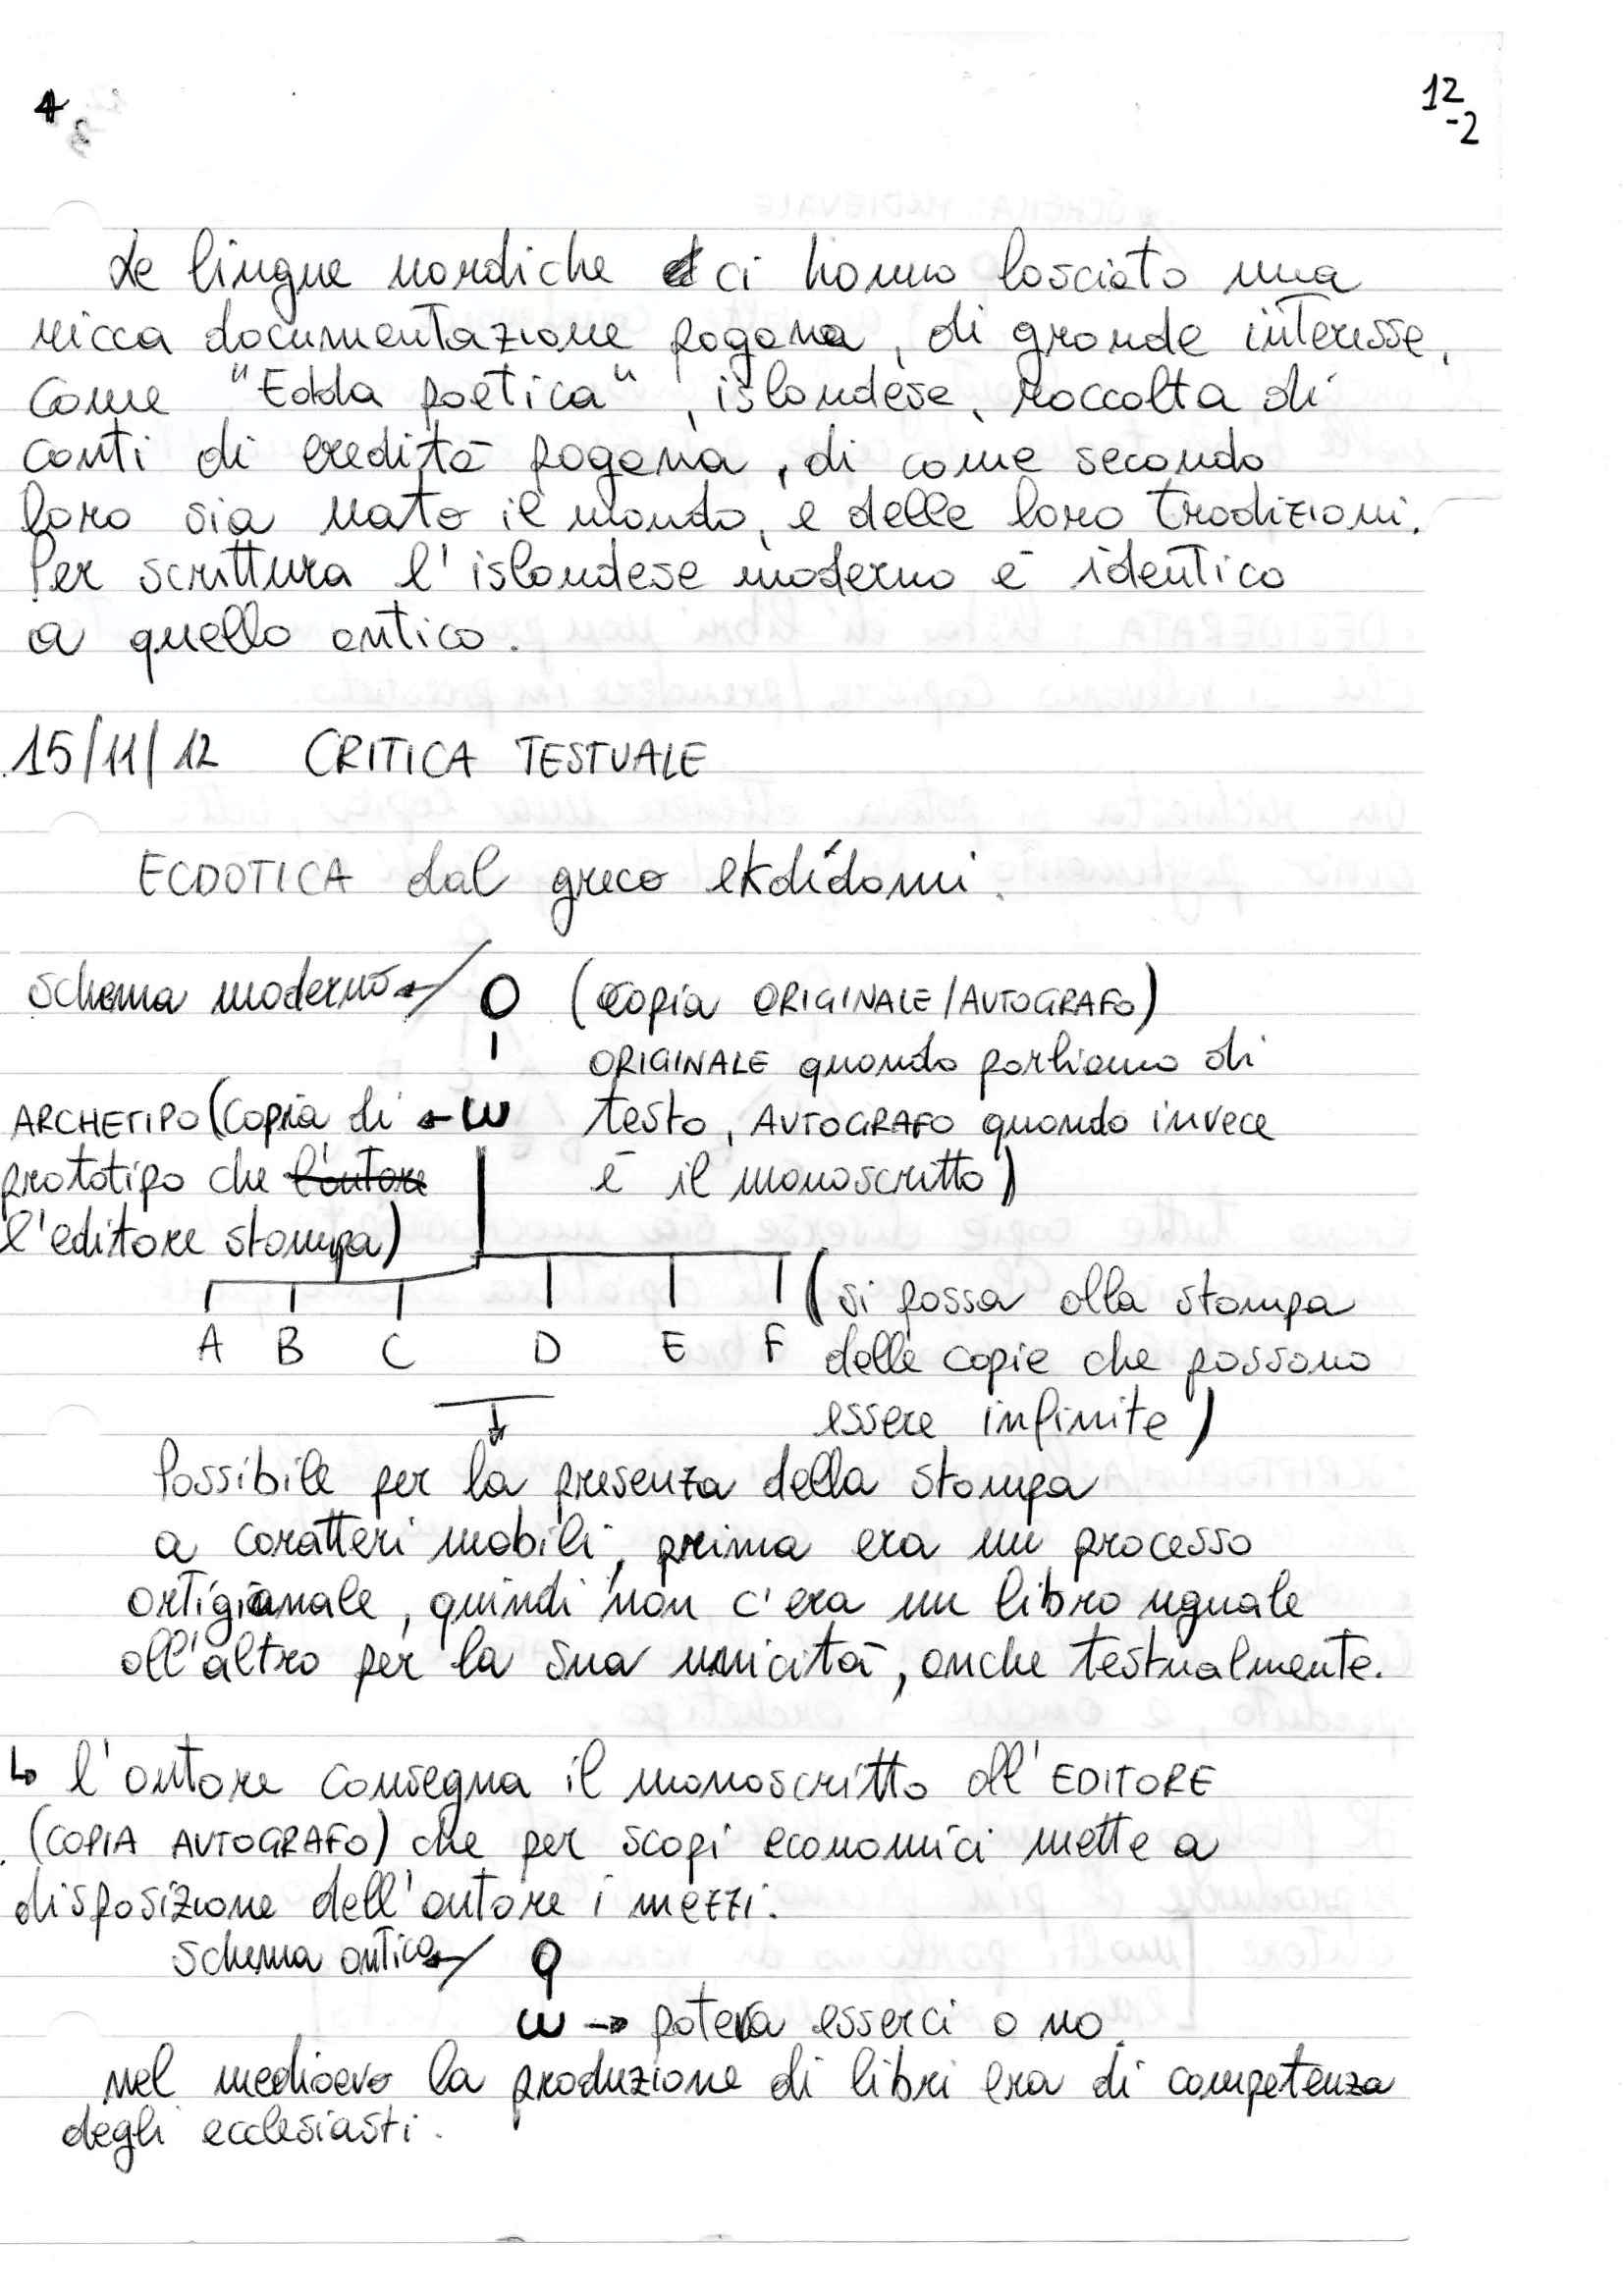 12
-2
Le lingue nordiche ci hanno lasciato una
ricca documentazione pagana, di grande interesse,
come "Edda poetica", islandese, raccolta di
canti di eredità pagana, di come secondo
loro sia nato il mondo, e delle loro tradizioni.
Per scrittura l'islandese moderno è identico
a quello antico.
15/11/12 CRITICA TESTUALE
ECDOTICA dal greco ekdídomi.
schema moderno O (copia ORIGINALE/AUTOGRAFO)
ORIGINALE quando parliamo di
ARCHETIPO (copia di ← ω testo, AUTOGRAFO quando invece
prototipo che l'autore è il manoscritto)
l'editore stampa)
(si passa alla stampa
A B C D E F delle copie che possono
essere infinite)
Possibile per la presenza della stampa
a caratteri mobili, prima era un processo
artigianale, quindi non c'era un libro uguale
all'altro per la sua unicità, anche testualmente.
↳ l'autore consegna il manoscritto all'EDITORE
(COPIA AUTOGRAFO) che per scopi economici mette a
disposizione dell'autore i mezzi.
schema antico O
ω → poteva esserci o no.
nel medioevo la produzione di libri era di competenza
degli ecclesiasti.